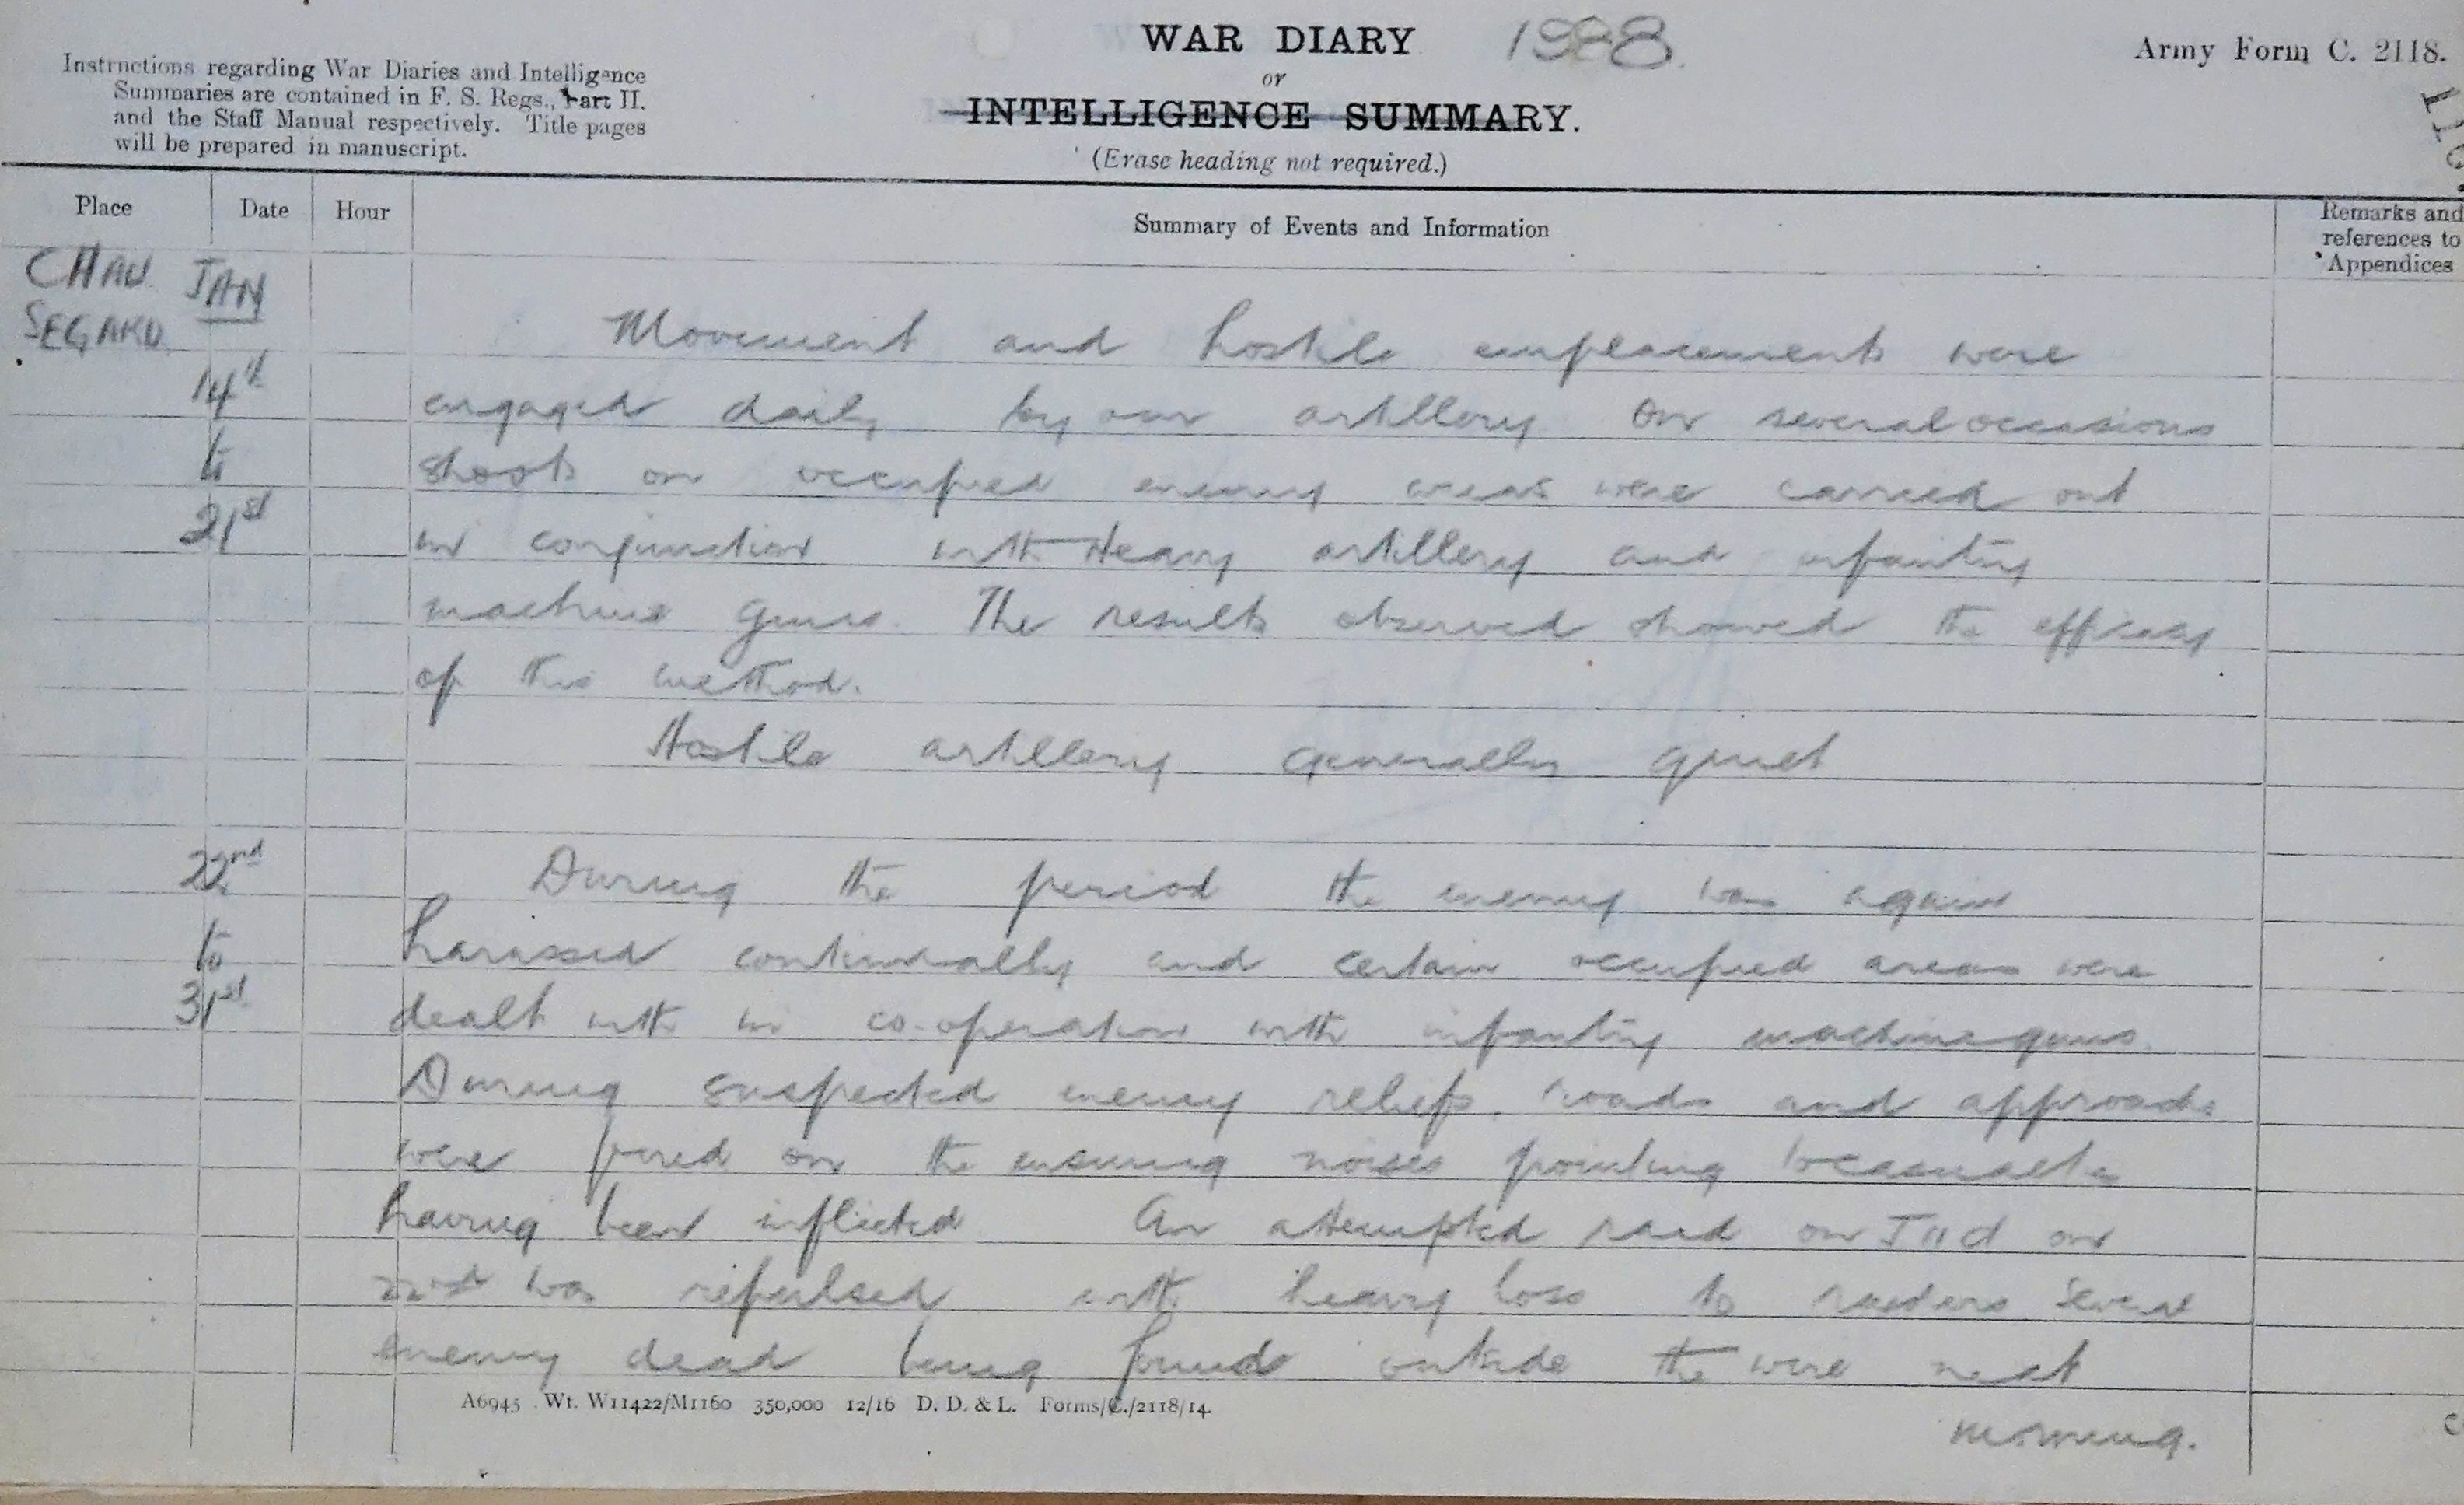 WAR DIARY 1988
or
INTELLIGENCE SUMMARY.
(Erase heading not required.)
Army Form C. 2118.
Instructions regarding War Diaries and Intelligence
Summaries are contained in F. S. Regs., Part II.
and the Staff Manual respectively. Title pages
will be prepared in manuscript.
Place Date Hour Summary of Events and Information Remarks and
references to
Appendices
CHAU SEGARD JAN
Movement and hostile emplacements were
14th engaged daily by our artillery On several occasions
to shoots on occupied enemy areas were carried out
21st in conjunction with Heavy artillery and infantry
machine guns. The results observed showed the efficacy
of this method.
Hostile artillery generally quiet
22nd During the period the enemy was again
to harassed continually and certain occupied areas were
31st dealt with in co-operation with infantry machine guns.
During suspected enemy reliefs, roads and approaches
were fired on the ensuing noises pointing to casualties
having been inflicted An attempted raid on J11d on
22nd was repulsed with heavy loss to raiders several
enemy dead being found outside the wire next
morning.
A6945 Wt. W11422/M1160 350,000 12/16 D. D. & L. Forms/C./2118/14.